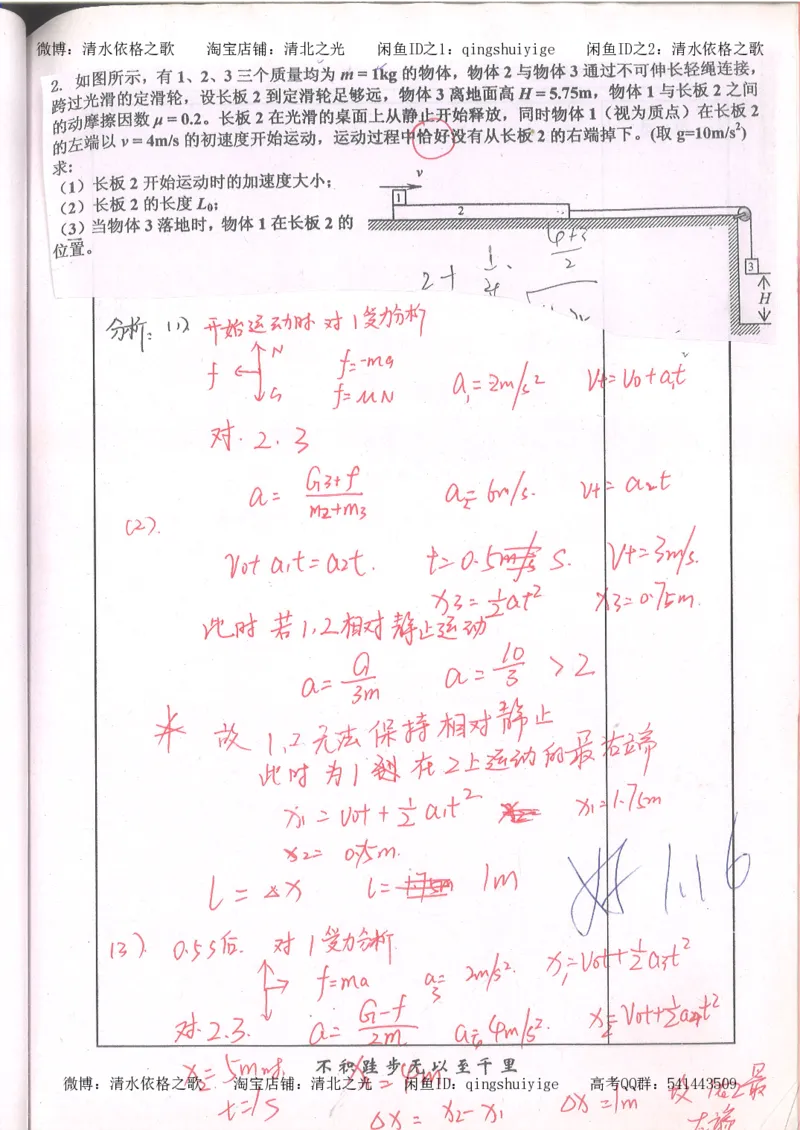 微博：清水依格之歌 淘宝店铺：清北之光 闲鱼ID之1：qingshuiyige 闲鱼ID之2：清水依格之歌
2. 如图所示，有 1、2、3 三个质量均为 m = 1kg 的物体，物体 2 与物体 3 通过不可伸长轻绳连接，
跨过光滑的定滑轮，设长板 2 到定滑轮足够远，物体 3 离地面高 H = 5.75m，物体 1 与长板 2 之间
的动摩擦因数 μ = 0.2。长板 2 在光滑的桌面上从静止开始释放，同时物体 1（视为质点）在长板 2
的左端以 v = 4m/s 的初速度开始运动，运动过程中恰好没有从长板 2 的右端掉下。(取 g=10m/s²)
求：
（1）长板 2 开始运动时的加速度大小；
（2）长板 2 的长度 L₀；
（3）当物体 3 落地时，物体 1 在长板 2 的
位置。
v
1
2
3
H
2+
分析：(1) 开始运动时 对1受力分析
N
f
G
f=-ma
f=μN
a₁=2m/s² Vt=V0+a₁t
对.2.3
a= G3+f / m2+m3 a2=6m/s. Vt=a2t
(2).
V0+a₁t=a2t. t=0.5 s. Vt=3m/s.
x3=½at² x3=0.75m.
此时 若1,2相对静止运动
a= G / 3m a= 10 / 3 > 2
故 1,2无法保持相对静止
此时为1 在2上运动的最右端
x₁=V0t+½a₁t² x₁=1.75m
x2= 0.75m.
l=Δx l= 1m
(3). 0.5s后. 对1受力分析
f=ma a3=2m/s². x₁=V0t+½a3t²
对.2.3. a= G-f / 2m. a4=4m/s². x2=V0t+½a4t²
不积跬步无以至千里
x2=5m时
微博：清水依格之歌 淘宝店铺：清北之光 闲鱼ID：qingshuiyige 高考QQ群：541443509
t=1s Δx=x2-x1 Δx=1m